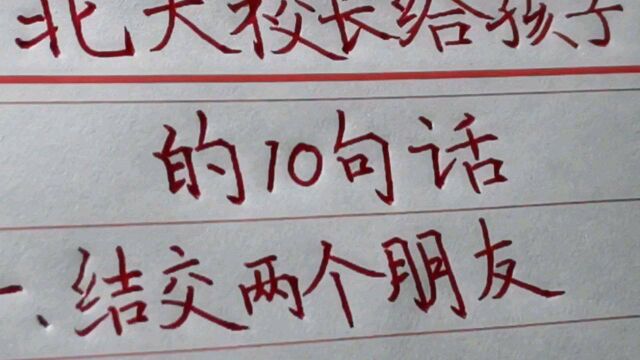 北大校长给孩子
的10句话
一、结交两个朋友